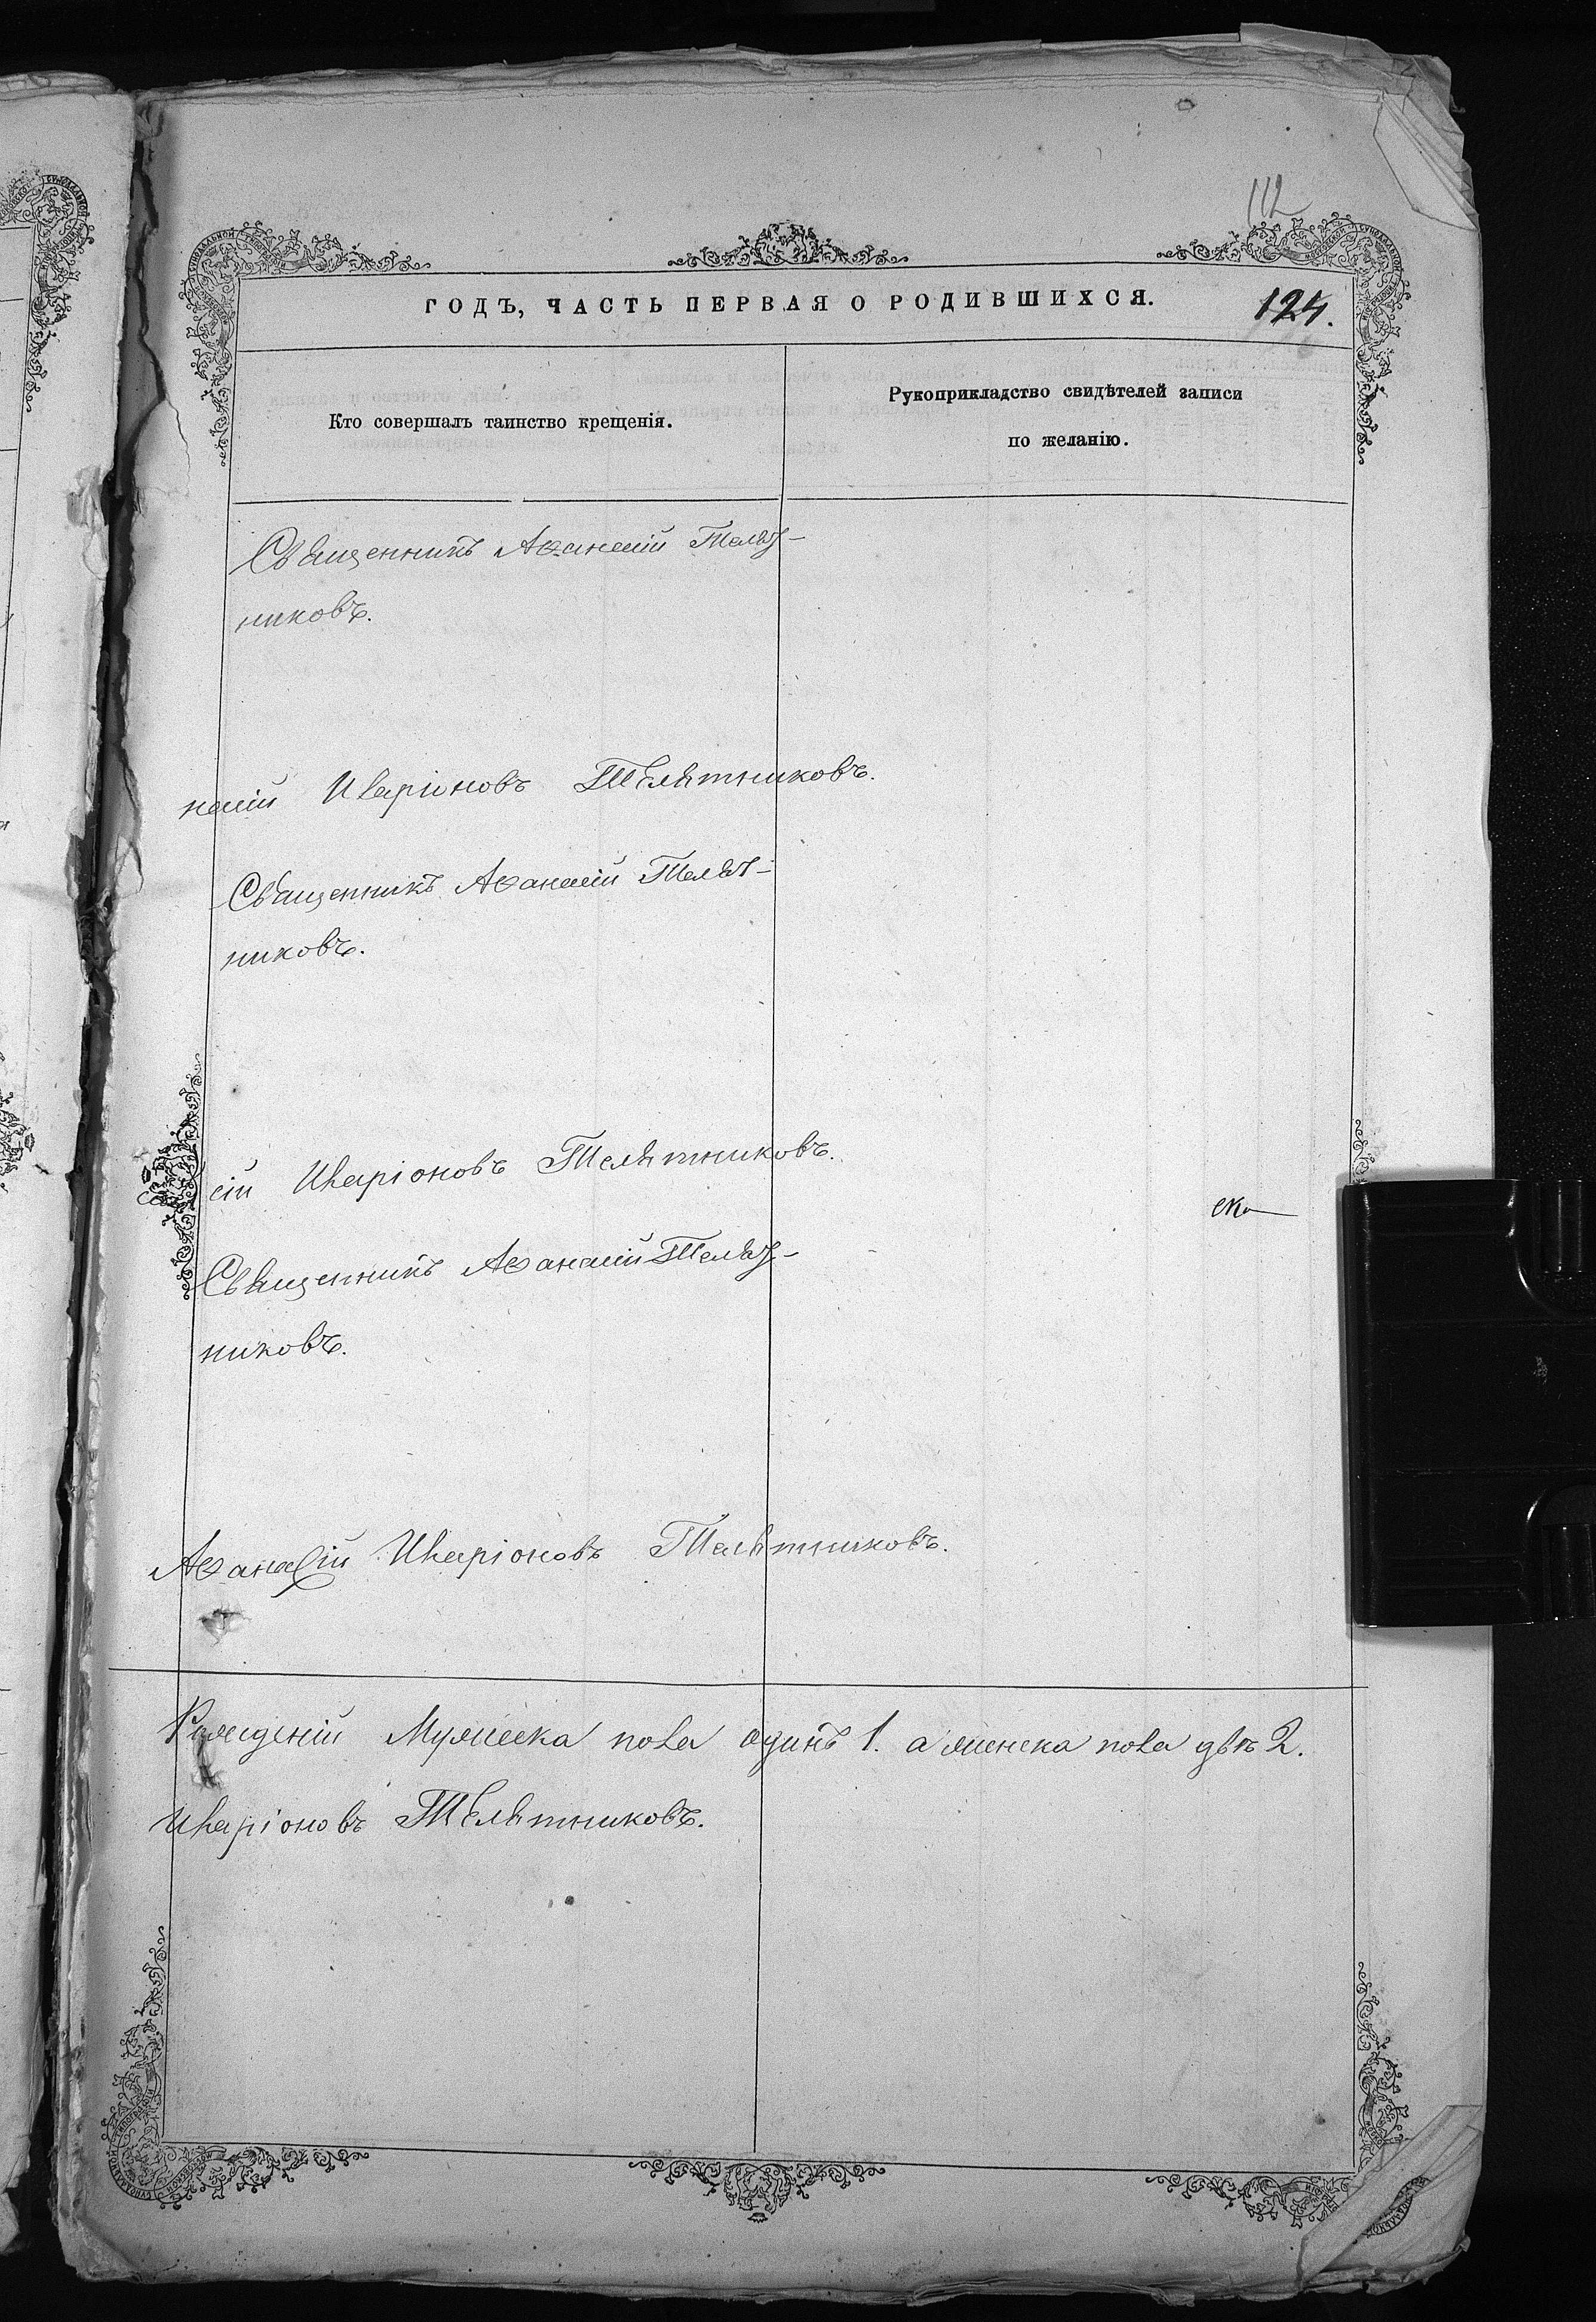 112
ГОДЪ, ЧАСТЬ ПЕРВАЯ О РОДИВШИХСЯ.
124.
Кто совершалъ таинство крещенія.
Рукоприкладство свидѣтелей записи
по желанію.
Священникъ Аѳанасій Телят-
никовъ.
насій Иларіоновъ Телятниковъ.
Священникъ Аѳанасій Телят-
никовъ.
сій Иларіоновъ Телятниковъ.
Священникъ Аѳанасій Телят-
никовъ.
Аѳанасій Иларіоновъ Телятниковъ.
Рожденій Мужеска пола одинъ 1. а женска пола двѣ 2.
Иларіоновъ Телятниковъ.